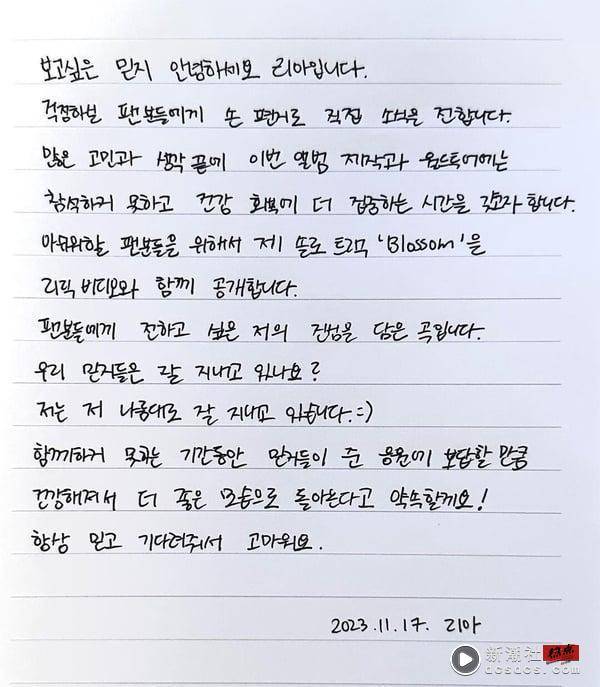 보고싶은 믿지 안녕하세요 리아입니다.
걱정하실 팬분들에게 손 편지로 직접 소식을 전합니다.
많은 고민과 생각 끝에 이번 앨범 제작과 월드투어에는
참석하지 못하고 건강 회복에 더 집중하는 시간을 갖고자 합니다.
아쉬워할 팬분들을 위해서 제 솔로 트랙 'Blossom'을
리릭 비디오와 함께 공개합니다.
팬분들에게 전하고 싶은 저의 진심을 담은 곡입니다.
우리 믿지들은 잘 지내고 있나요?
저는 저 나름대로 잘 지내고 있습니다.=)
함께하지 못하는 기간동안 믿지들이 준 응원에 보답할 만큼
건강해져서 더 좋은 모습으로 돌아온다고 약속할게요!
항상 믿고 기다려줘서 고마워요.
2023.11.17. 리아
新潮社
dcsdcs.com